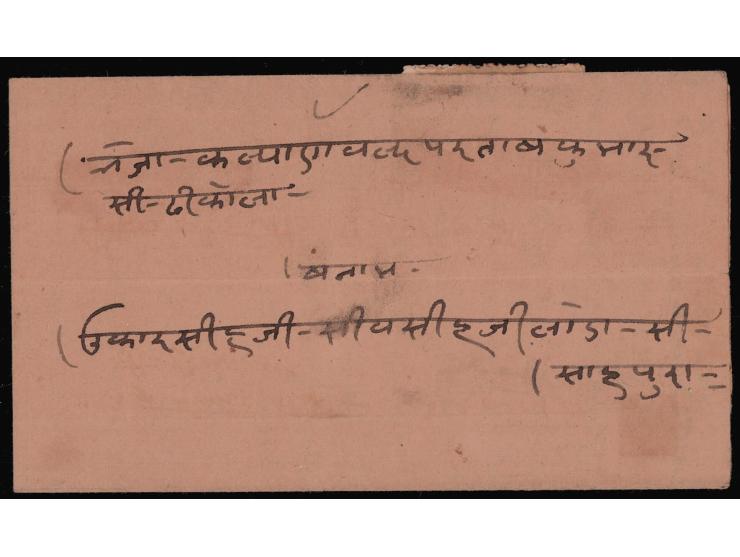 (भेजा - कल्याणचन्द परताब कुमार -
सी - ढीकोला -
(बनाम -
(उकारसीहजी - सीवसीहजी लोडा - सी -
(साहपुरा -